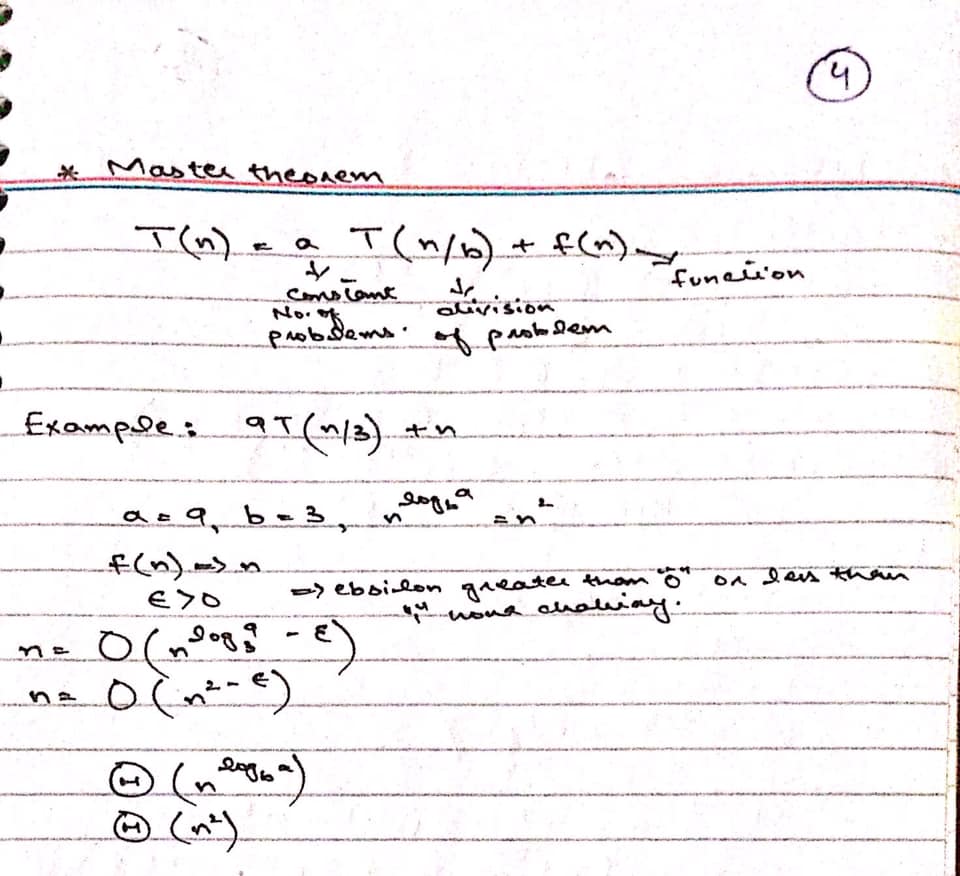 4
* Master theorem
T(n) = a T(n/b) + f(n) → function
↓ constant No. of problems. ↓ division of problem
Example: 9T(n/3) + n
a = 9, b = 3, n^log_b a = n^2
f(n) => n
ϵ > 0 => ebsilon greater than "0" or less than
"1" hona chahiay.
n = O(n^log_3 9 - ε)
n = O(n^2 - ϵ)
Θ(n^log_b a)
Θ(n^2)